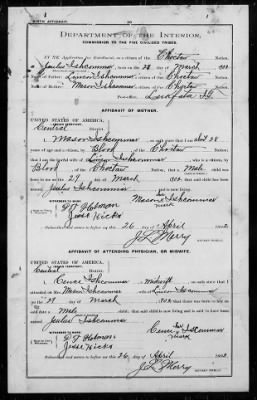 BIRTH AFFIDAVIT.
DEPARTMENT OF THE INTERIOR,
COMMISSION TO THE FIVE CIVILIZED TRIBES.
IN RE Application for Enrollment, as a citizen of the Choctaw Nation,
of Ishcommer, born on the 29 day of March, 190
Name of Father: Ishcommer a citizen of the Choctaw Nation.
Name of Mother: Mason Ishcommer a citizen of the Choctaw Nation.
AFFIDAVIT OF MOTHER.
UNITED STATES OF AMERICA,
Central District.
I, Mason Ishcommer, on oath state that I am about 28
years of age and a citizen, by Blood, of the Choctaw Nation;
that I am the lawful wife of Ishcommer, who is a citizen, by
Blood of the Choctaw Nation; that a Male child was
born to me on the 29 day of March, 190 that said child has been
named Ishcommer, and is now living.
Mason Ishcommer
mark
WITNESSES TO MARK:
Holman
Jesse Hicks
Subscribed and sworn to before me this 26 day of April, 190
J L Merry
NOTARY PUBLIC.
AFFIDAVIT OF ATTENDING PHYSICIAN, OR MIDWIFE.
UNITED STATES OF AMERICA,
Central District.
I, Ishcommer, a midwife, on oath state that I
attended on Mrs. Mason Ishcommer, wife of Ishcommer
on the 29 day of March, 190 that there was born to her on
said date a Male child; that said child is now living and is said to have been
named Ishcommer
Ishcommer
mark
WITNESSES TO MARK:
Holman
Jesse Hicks
Subscribed and sworn to before me this 26 day of April, 190
J L Merry
NOTARY PUBLIC.